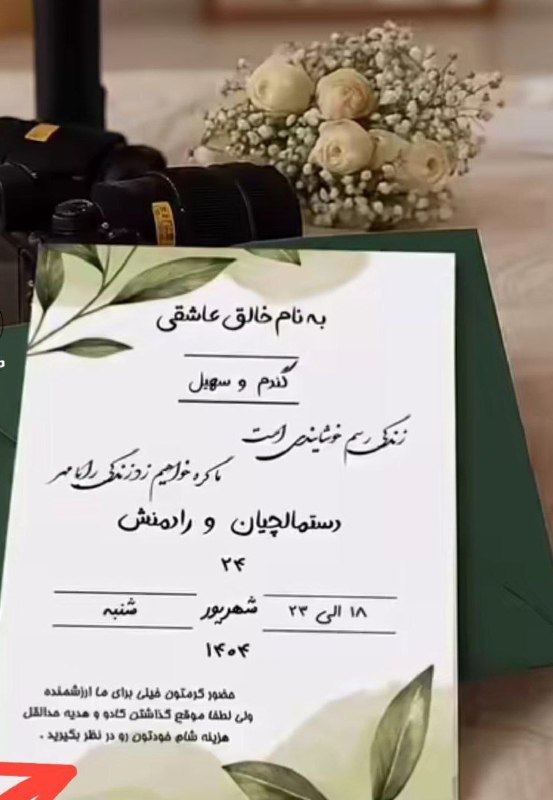 به نام خالق عاشقی
گندم و سهیل
زندگی رسم خوشایندی است
ما گره خواهیم زد زندگی را با مهر
دستمالچیان و رادمنش
۲۴
۱۸ الی ۲۳ شهریور شنبه
۱۴۰۴
حضور گرمتون خیلی برای ما ارزشمنده
ولی لطفا موقع گذاشتن کادو و هدیه حداقل
هزینه شام خودتون رو در نظر بگیرید .